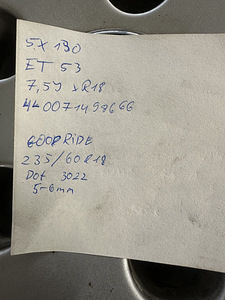 5X130
ET 53
7,5J xR18
4400714986GG
GOODRIDE
235/60R18
DOT 3022
5-6mm